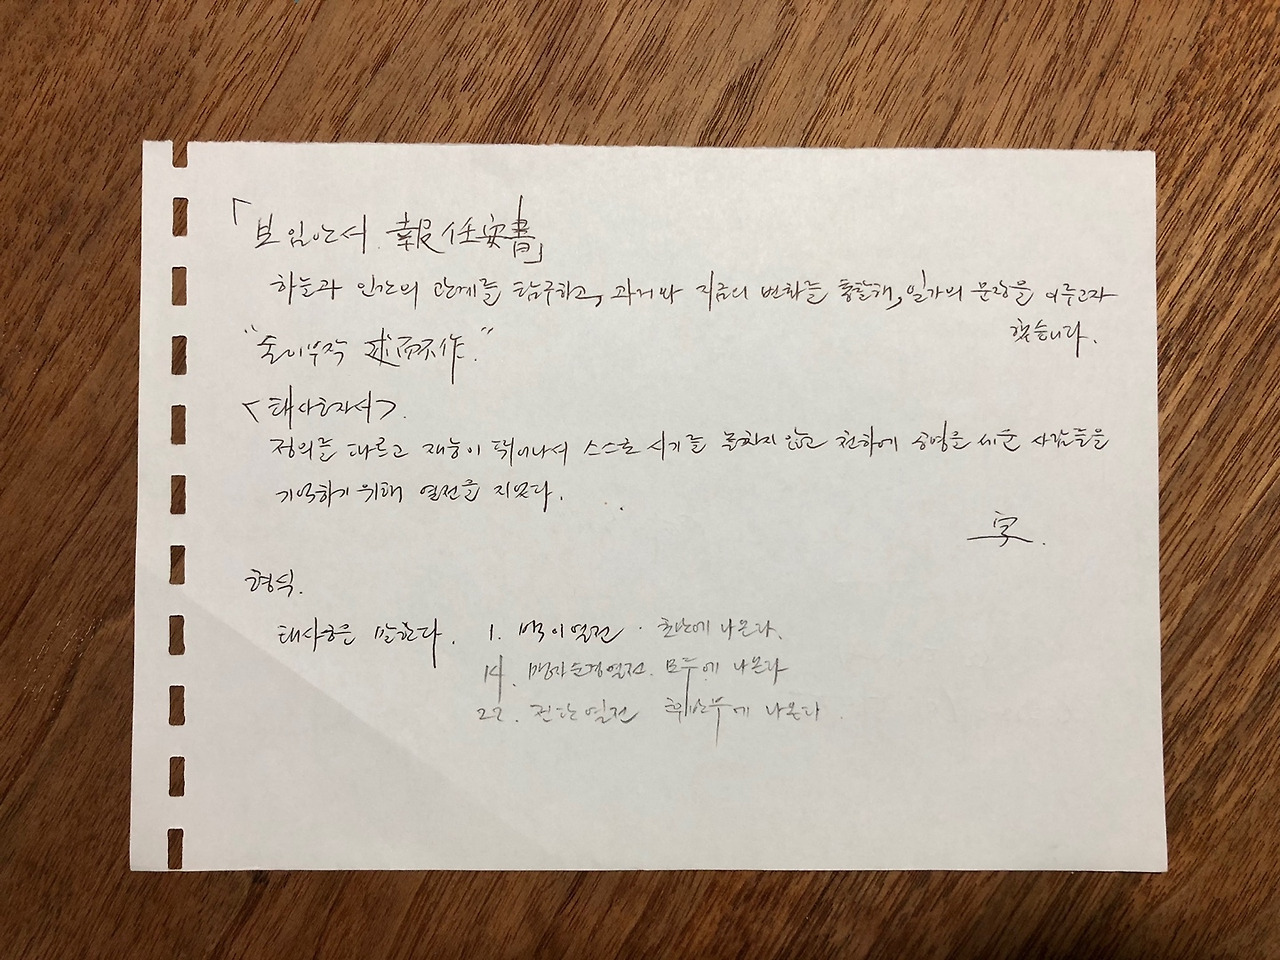 「보임안서 報任安書」
하늘과 인간의 관계를 탐구하고, 과거와 지금의 변화를 통찰해, 일가의 문장을 이루고자
했습니다.
"술이부작 述而不作."
<태사공자서>.
정의를 따르고 재능이 뛰어나서 스스로 시기를 놓치지 않고 천하에 공명을 세운 사람들을
기억하기 위해 열전을 지었다.
형식.
태사공은 말한다. 1. 백이열전 · 초반에 나온다.
14. 맹자순경열전. 모두에 나온다
22. 전단열전 후반부에 나온다.